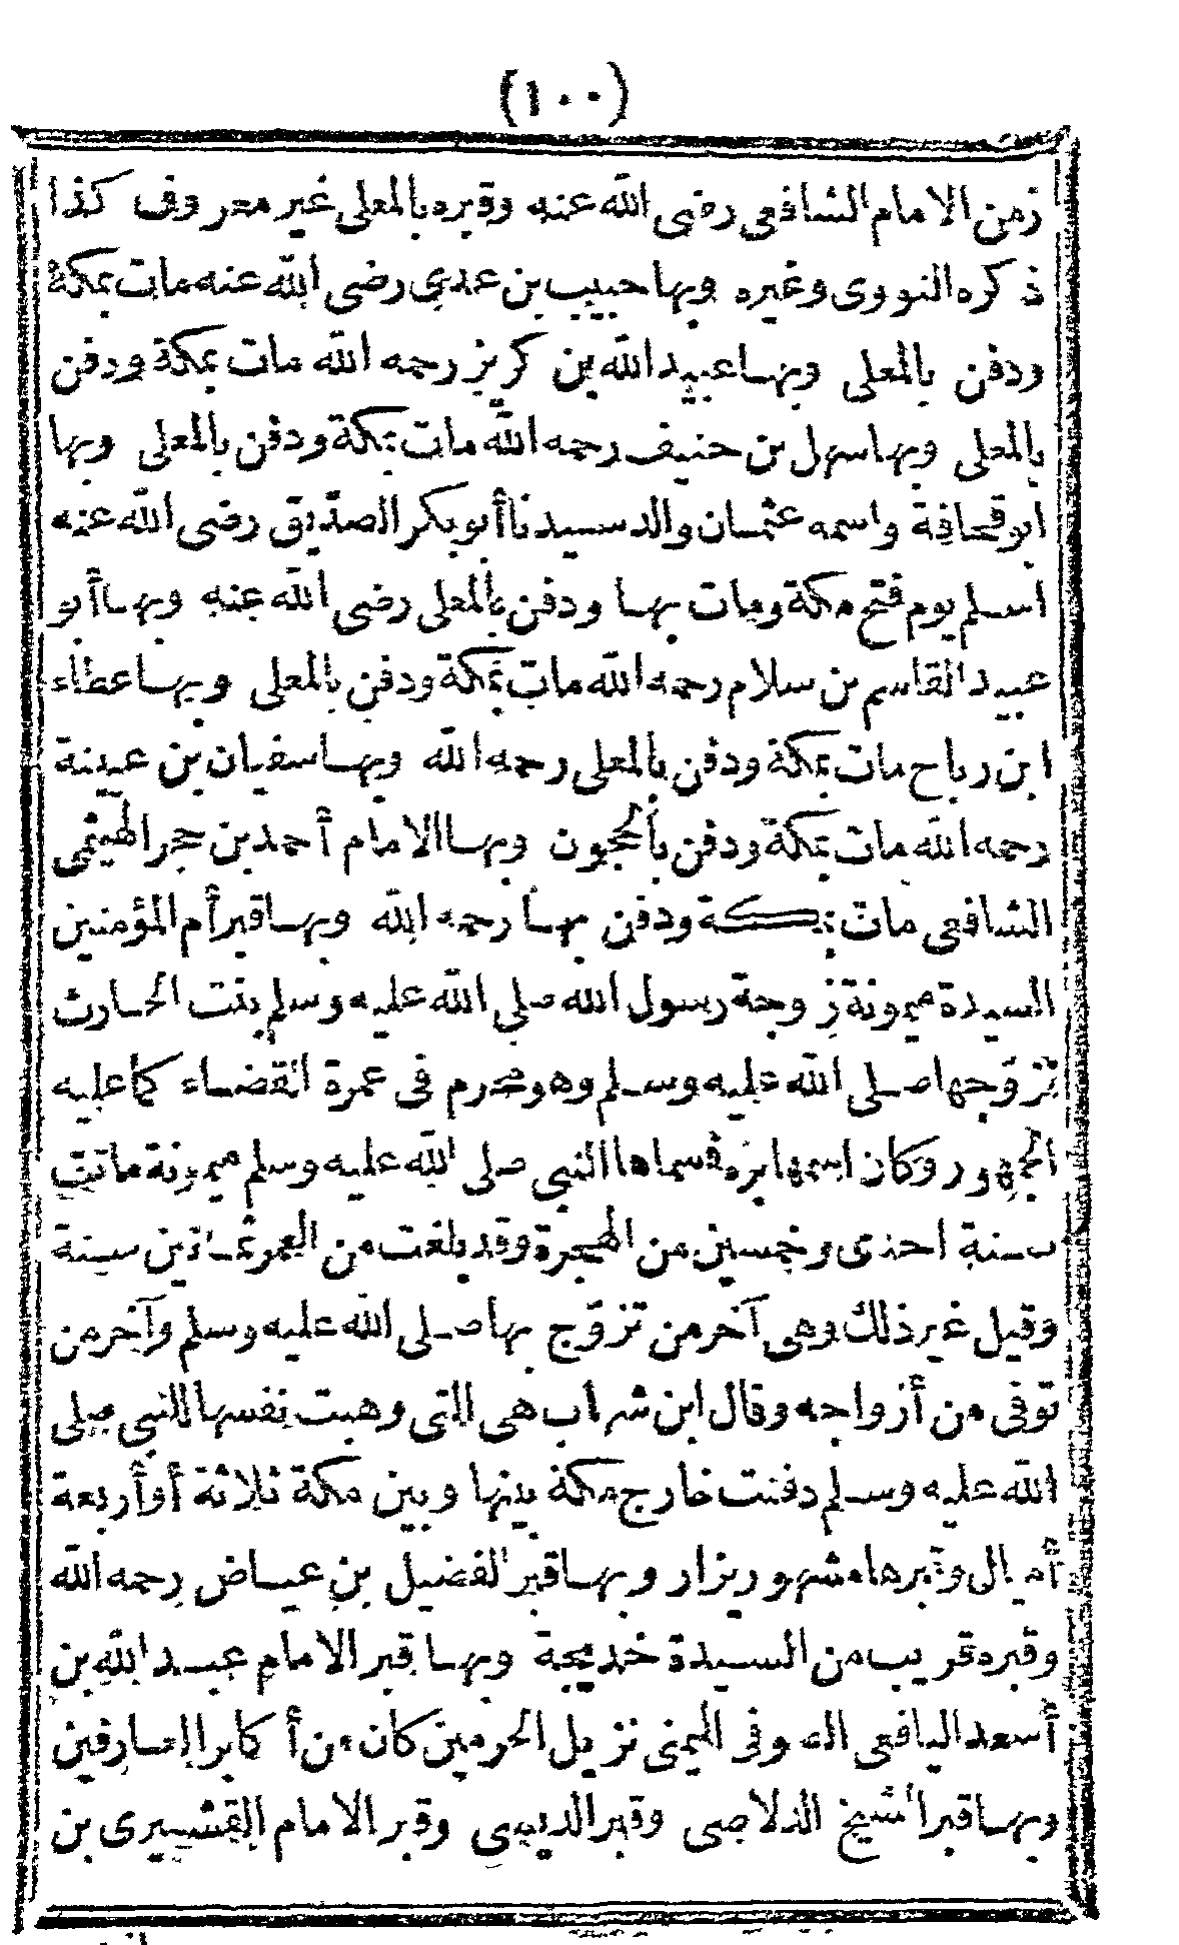 (١٠٠)
زمن الامام الشافعي رضى الله عنه وقبره بالمعلى غير معروف كذا
ذكره النووى وغيره وبها حبيب بن عدي رضى الله عنه مات بمكة
ودفن بالمعلى وبها عبيد الله بن كريز رحمه الله مات بمكة ودفن
بالمعلى وبها سهل بن حنيف رحمه الله مات بمكة ودفن بالمعلى وبها
ابو قحافة واسمه عثمان والد سيدنا أبو بكر الصدّيق رضى الله عنه
اسلم يوم فتح مكة ومات بها ودفن بالمعلى رضى الله عنه وبها أبو
عبيد القاسم بن سلام رحمه الله مات بمكة ودفن بالمعلى وبها عطاء
ابن رباح مات بمكة ودفن بالمعلى رحمه الله وبها سفيان بن عيينة
رحمه الله مات بمكة ودفن بالحجون وبها الامام أحمد بن حجر الهيثمى
الشافعى مات بمكة ودفن بها رحمه الله وبها قبر أم المؤمنين
السيدة ميمونة زوجة رسول الله صلى الله عليه وسلم بنت الحارث
تزوّجها صلى الله عليه وسلم وهو محرم فى عمرة القضاء كما عليه
الجمهور وكان اسمها برة فسماها النبى صلى الله عليه وسلم ميمونة ماتت
سنة احدى وخمسين من الهجرة وقد بلغت من العمر ثمانين سنة
وقيل غير ذلك وهى آخر من تزوّج بها صلى الله عليه وسلم وآخر من
توفى من أزواجه وقال ابن شهاب هى التى وهبت نفسها للنبى صلى
الله عليه وسلم دفنت خارج مكة بينها وبين مكة ثلاثة أو أربعة
أميال وقبرها مشهور يزار وبها قبر الفضيل بن عياض رحمه الله
وقبره قريب من السيدة خديجة وبها قبر الامام عبد الله بن
أسعد اليافعى الصوفى اليمنى نزيل الحرمين كان من أكابر العارفين
وبها قبر الشيخ الدلاصى وقبر الديبى وقبر الامام القشيرى بن